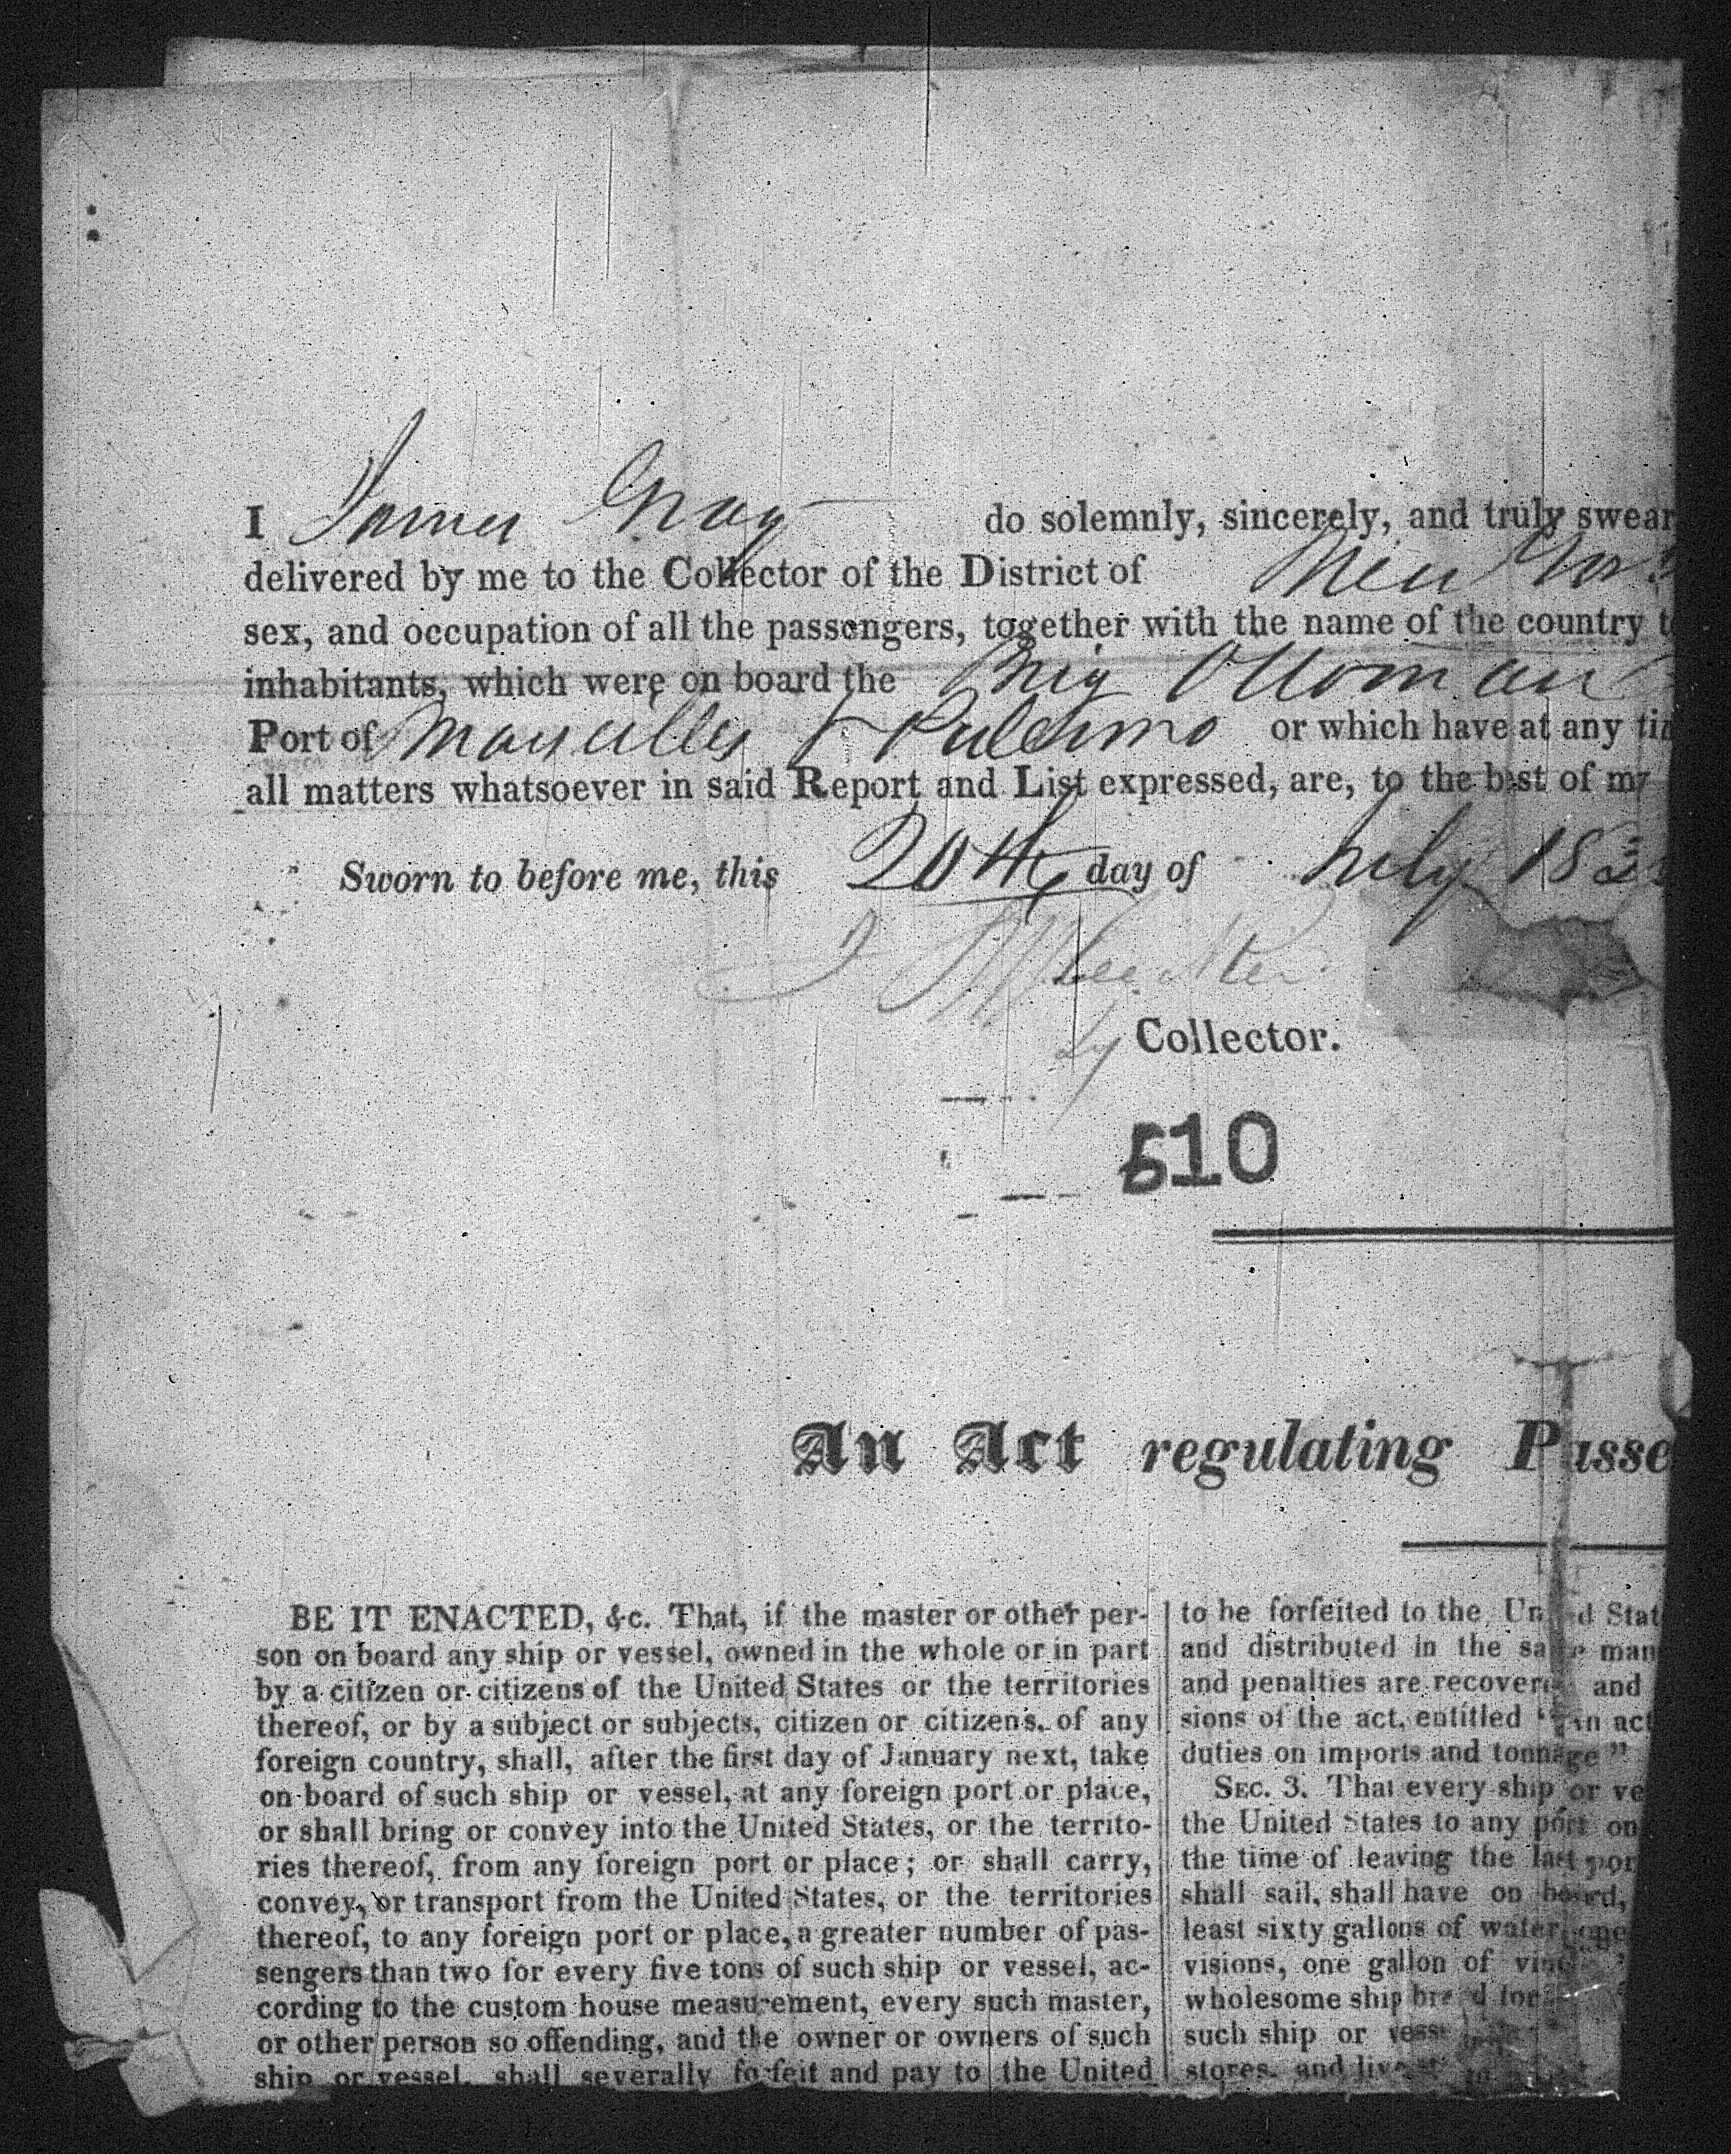 I James Gray do solemnly, sincerely, and truly swear
delivered by me to the Collector of the District of New York
sex, and occupation of all the passengers, together with the name of the country
inhabitants, which were on board the Brig Ottoman
Port of Marseilles & Palermo or which have at any
all matters whatsoever in said Report and List expressed, are, to the best of my
Sworn to before me, this 20th day of July 183
Collector.
510
An Act regulating Passe
BE IT ENACTED, &c. That, if the master or other per-
son on board any ship or vessel, owned in the whole or in part
by a citizen or citizens of the United States or the territories
thereof, or by a subject or subjects, citizen or citizens, of any
foreign country, shall, after the first day of January next, take
on board of such ship or vessel, at any foreign port or place,
or shall bring or convey into the United States, or the territo-
ries thereof, from any foreign port or place; or shall carry,
convey, or transport from the United States, or the territories
thereof, to any foreign port or place, a greater number of pas-
sengers than two for every five tons of such ship or vessel, ac-
cording to the custom house measurement, every such master,
or other person so offending, and the owner or owners of such
ship or vessel, shall severally forfeit and pay to the United
to be forfeited to the United Stat
and distributed in the same man
and penalties are recovered and
sions of the act, entitled "An act
duties on imports and tonnage"
SEC. 3. That every ship or ve
the United States to any port on
the time of leaving the last por
shall sail, shall have on board,
least sixty gallons of water, one
visions, one gallon of
wholesome ship bread for
such ship or
stores, and live